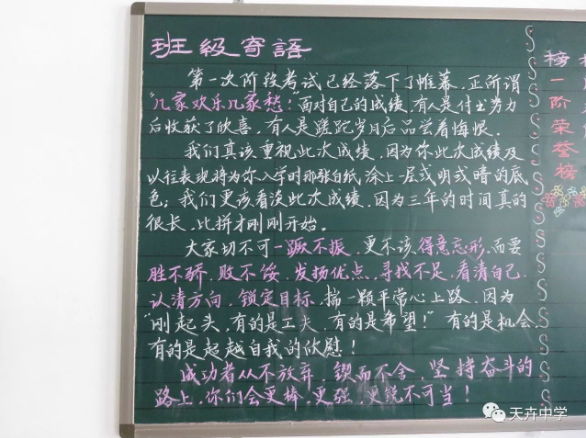 班级寄語
第一次阶段考试已经落下了帷幕,正所谓
"几家欢乐几家愁!"面对自己的成绩,有人是付出努力
后收获了欣喜,有人是蹉跎岁月后品尝着悔恨.
我们真该重视此次成绩,因为你此次成绩及
以往表现将为你入学时那张白纸,涂上一层或明或暗的底
色;我们更该看淡此次成绩,因为三年的时间真的
很长,比拼才刚刚开始。
大家切不可一蹶不振,更不该得意忘形,而要
胜不骄,败不馁,发扬优点,寻找不足,看清自己,
认清方向,锁定目标,揣一颗平常心上路,因为
"刚起头,有的是工夫,有的是希望!"有的是机会,
有的是超越自我的欣慰!
成功者从不放弃,锲而不舍,坚持奋斗的
路上,你们会更棒,更强,更锐不可当!
榜
一阶荣誉榜
天卉中学